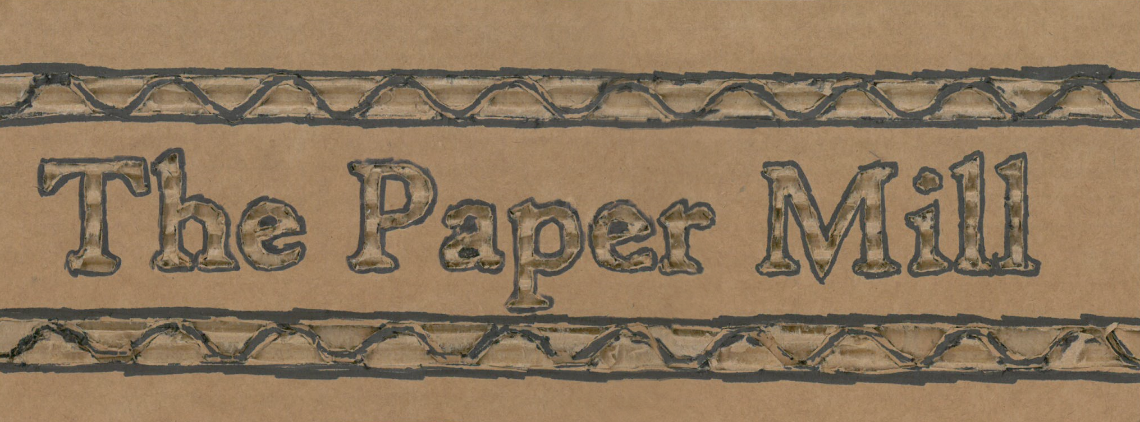 The Paper Mill